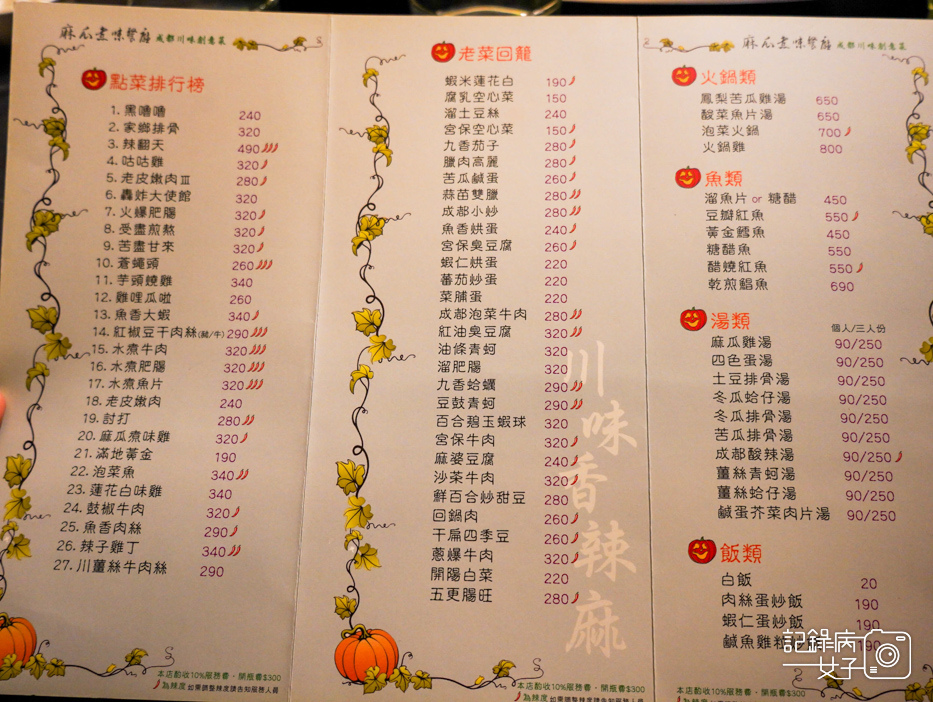 麻瓜煮味學府 成都川味創意菜
點菜排行榜
1. 黑嚕嚕 240
2. 家鄉排骨 320
3. 辣翻天 490
4. 咕咕雞 320
5. 老皮嫩肉III 280
6. 轟炸大使館 320
7. 火爆肥腸 320
8. 受盡煎熬 320
9. 苦盡甘來 320
10. 蒼蠅頭 260
11. 芋頭燒雞 340
12. 雞哩瓜啦 260
13. 魚香大蝦 340
14. 紅椒豆干肉絲(豬/牛) 290
15. 水煮牛肉 320
16. 水煮肥腸 320
17. 水煮魚片 320
18. 老皮嫩肉 240
19. 討打 280
20. 麻瓜煮味雞 320
21. 滿地黃金 190
22. 泡菜魚 340
23. 蓮花白味雞 340
24. 鼓椒牛肉 320
25. 魚香肉絲 290
26. 辣子雞丁 340
27. 川薑絲牛肉絲 290
本店酌收10%服務費．開瓶費$300
為辣度 如需調整辣度請告知服務人員
老菜回籠
蝦米蓮花白 190
腐乳空心菜 150
溜土豆絲 240
宮保空心菜 150
九香茄子 280
臘肉高麗 280
苦瓜鹹蛋 260
蒜苗雙臘 280
成都小炒 280
魚香烘蛋 240
宮保臭豆腐 260
蝦仁烘蛋 220
蕃茄炒蛋 220
菜脯蛋 220
成都泡菜牛肉 280
紅油臭豆腐 320
油條青蚵 320
溜肥腸 320
九香蛤蠣 290
豆鼓青蚵 290
百合碧玉蝦球 320
宮保牛肉 320
麻婆豆腐 240
沙茶牛肉 320
鮮百合炒甜豆 280
回鍋肉 260
干扁四季豆 260
蔥爆牛肉 320
開陽白菜 220
五更腸旺 280
川味香辣麻
本店酌收10%服務費．開瓶費$300
為辣度 如需調整辣度請告知服務人員
麻瓜煮味學府 成都川味創意菜
火鍋類
鳳梨苦瓜雞湯 650
酸菜魚片湯 650
泡菜火鍋 700
火鍋雞 800
魚類
溜魚片 or 糖醋 450
豆瓣紅魚 550
黃金鱈魚 450
糖醋魚 550
醋燒紅魚 550
乾煎鯧魚 690
湯類 個人/三人份
麻瓜雞湯 90/250
四色蛋湯 90/250
土豆排骨湯 90/250
冬瓜蛤仔湯 90/250
冬瓜排骨湯 90/250
苦瓜排骨湯 90/250
成都酸辣湯 90/250
薑絲青蚵湯 90/250
薑絲蛤仔湯 90/250
鹹蛋芥菜肉片湯 90/250
飯類
白飯 20
肉絲蛋炒飯 190
蝦仁蛋炒飯 190
鹹魚雞粒炒飯 190
記錄病女子
本店酌收10%服務費．開瓶費$300
為辣度 如需調整辣度請告知服務人員